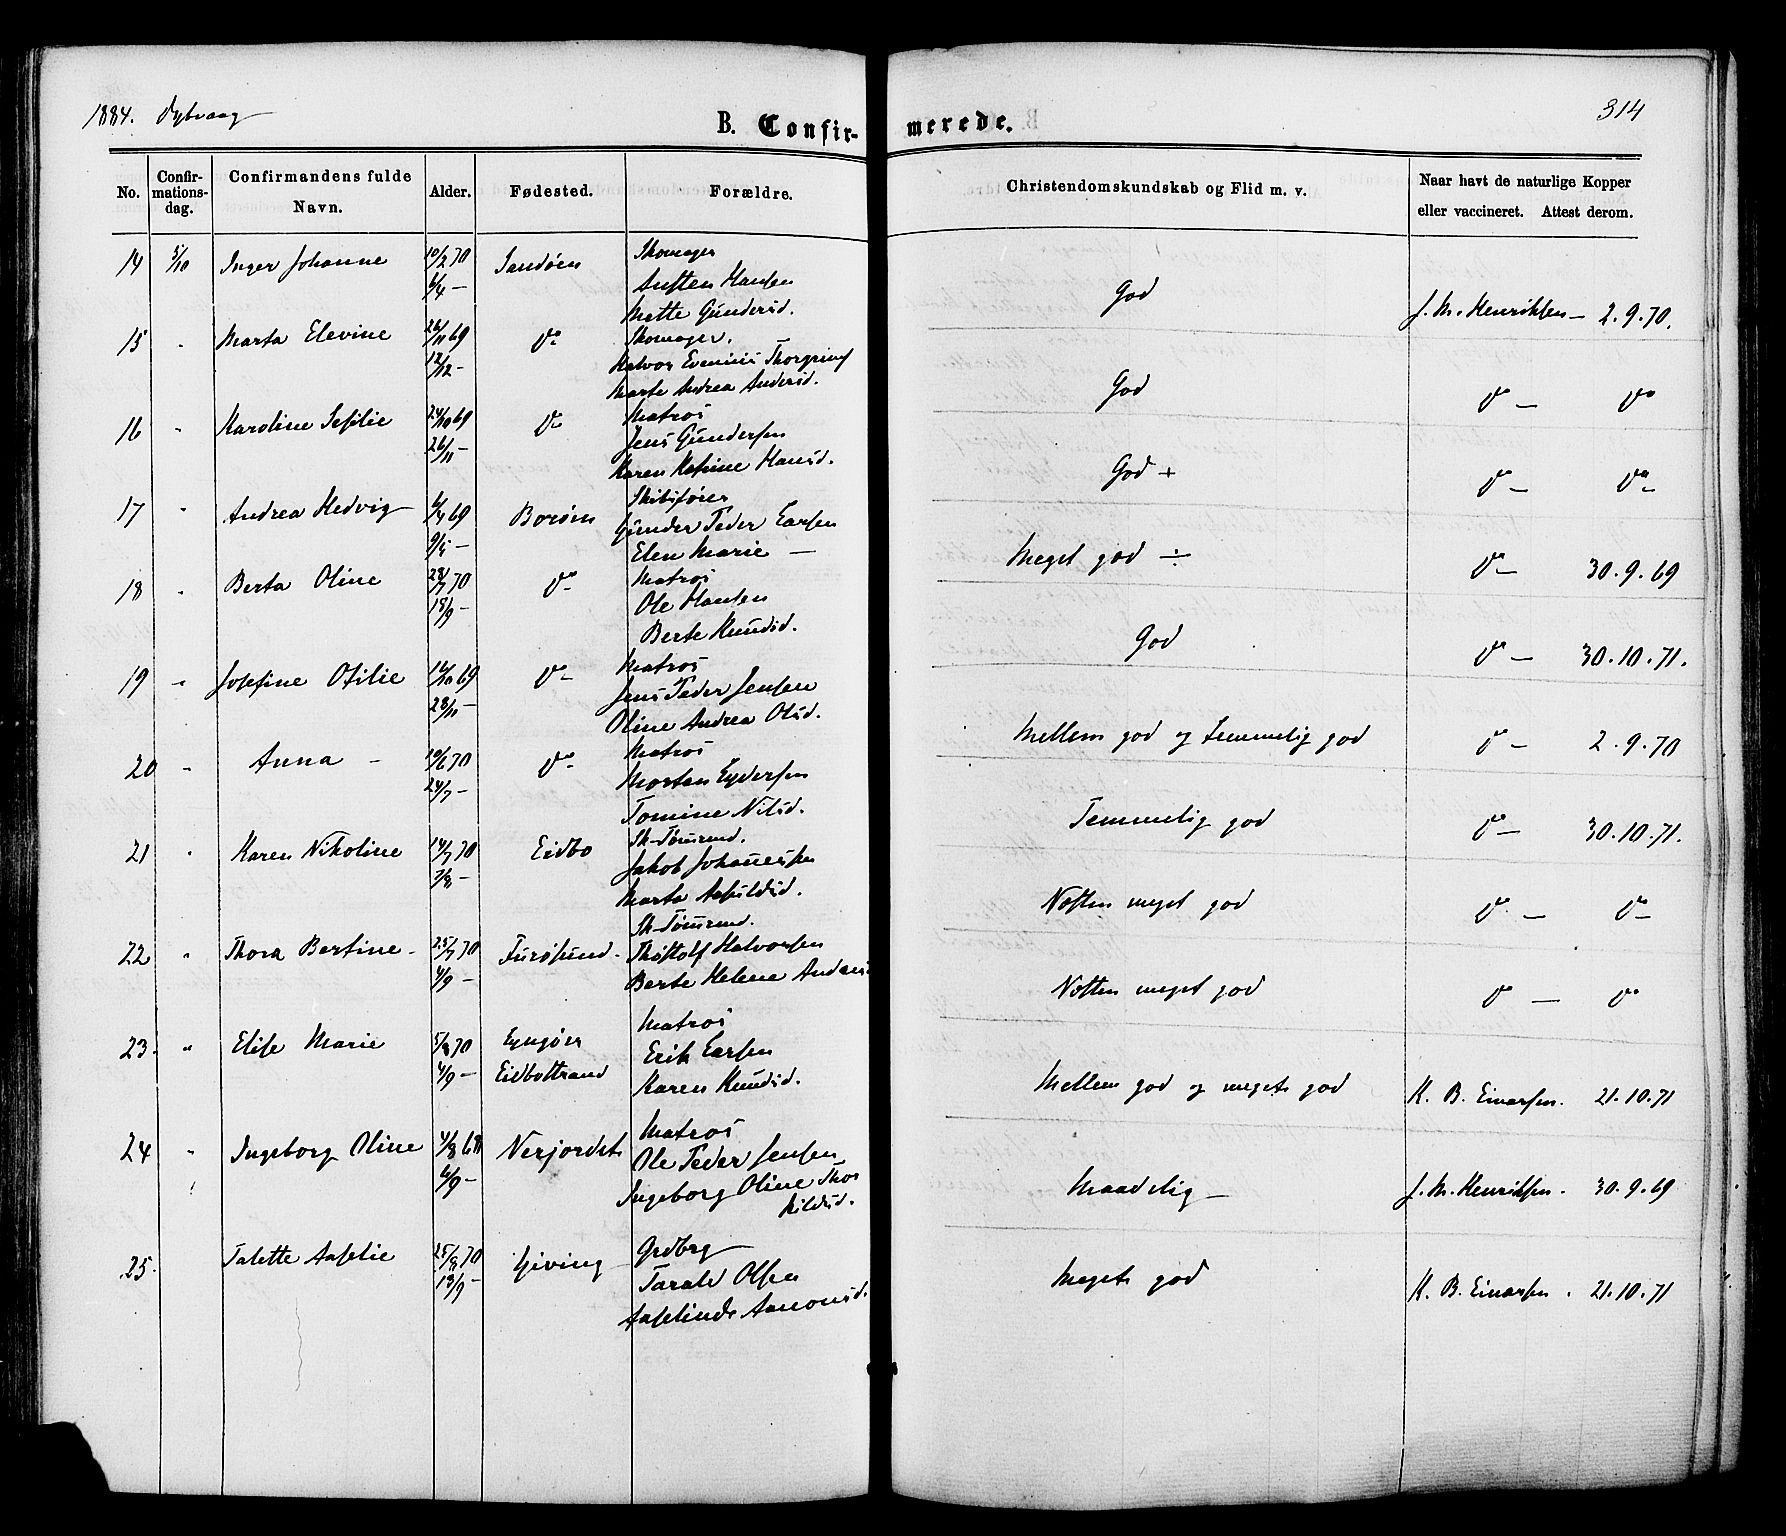 1884. Dybvaag
B. Confir-
merede.
314
No.
Confir-
mations-
dag.
Confirmandens fulde
Navn.
Alder.
Fødested.
Forældre.
Christendomskundskab og Flid m. v.
Naar havt de naturlige Kopper
eller vaccineret. Attest derom.
14 5/10 Inger Johanne 10/2 70 Sandøen Skomager
6/4 — Austen Hansen
Mette Gundersd.
God J. M. Henriksen — 2.9.70.
15 " Marta Elevine 26/11 69 do Skomager.
12/12 — Halvor Evenius
Marte Andrea Andersd.
God do — do
16 " Karoline Sefilie 24/10 69 do Matros
26/11 — Jens Gundersen
Karen Katrine Hansd.
God + do — do
17 " Andrea Hedvig 4/4 69 Borøen Skibsfører
9/5 — Gunder Peder Larsen
Elen Marie —
Meget god ÷ do — 30.9.69
18 " Berta Oline 28/7 70 do Matros
18/9 — Ole Hansen
Berte Knudsd.
God do — 30.10.71.
19 " Josefine Otilie 16/10 69 do Matros
28/11 — Jens Peder Jensen
Oline Andrea Olsd.
Mellem god og temmelig god do — 2.9.70
20 " Anna — 10/6 70 do Matros
24/7 — Morten Lydersen
Tomine Nilsd.
Temmelig god do — 30.10.71.
21 " Karen Nikoline 14/7 70 Eidbo Sk-Tømrmd.
7/8 — Jakob Johannesen
Marta Asfuldsd.
Næsten meget god do — do
22 " Thora Bertine — 25/7 70 Furøsund. Sk-Tømrmd.
4/9 — Thostolf Halvorsen
Berte Helene Anders
Næsten meget god do — do
23. " Elise Marie 5/8 70 Lyngør Matros
4/9 — Eidbostrand Erik Larsen
Karen Knudsd.
Mellem god og megets god K. B. Einarsen. 21.10.71
24 " Ingeborg Oline 4/8 68 Nesjordet Matros
6/9 — Ole Peder Jensen
Ingeborg Oline Thor
kildsd.
Maadelig — J. M. Henriksen. 30.9.69
25. Talette Aaselie 25/8 70 Gjeving Grdbrg
18/9 — Tarald Olsen
Aaselinde Aanonsd.
Megets god K. B. Einarsen. 21.10.71